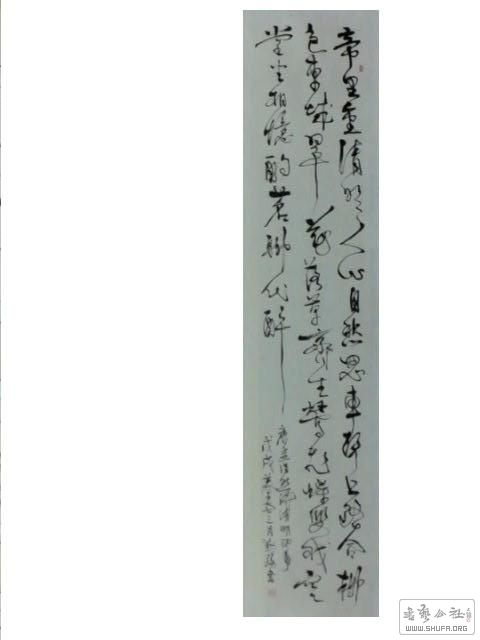 帝里重清明人心自愁思車聲上路合柳
色東城翠花落草齊生鶯飛蝶雙戲空
堂坐相憶酌茗聊代醉
唐孟浩然詩清明即事
戊戌
書
书艺公社
WWW.SHUFA.ORG